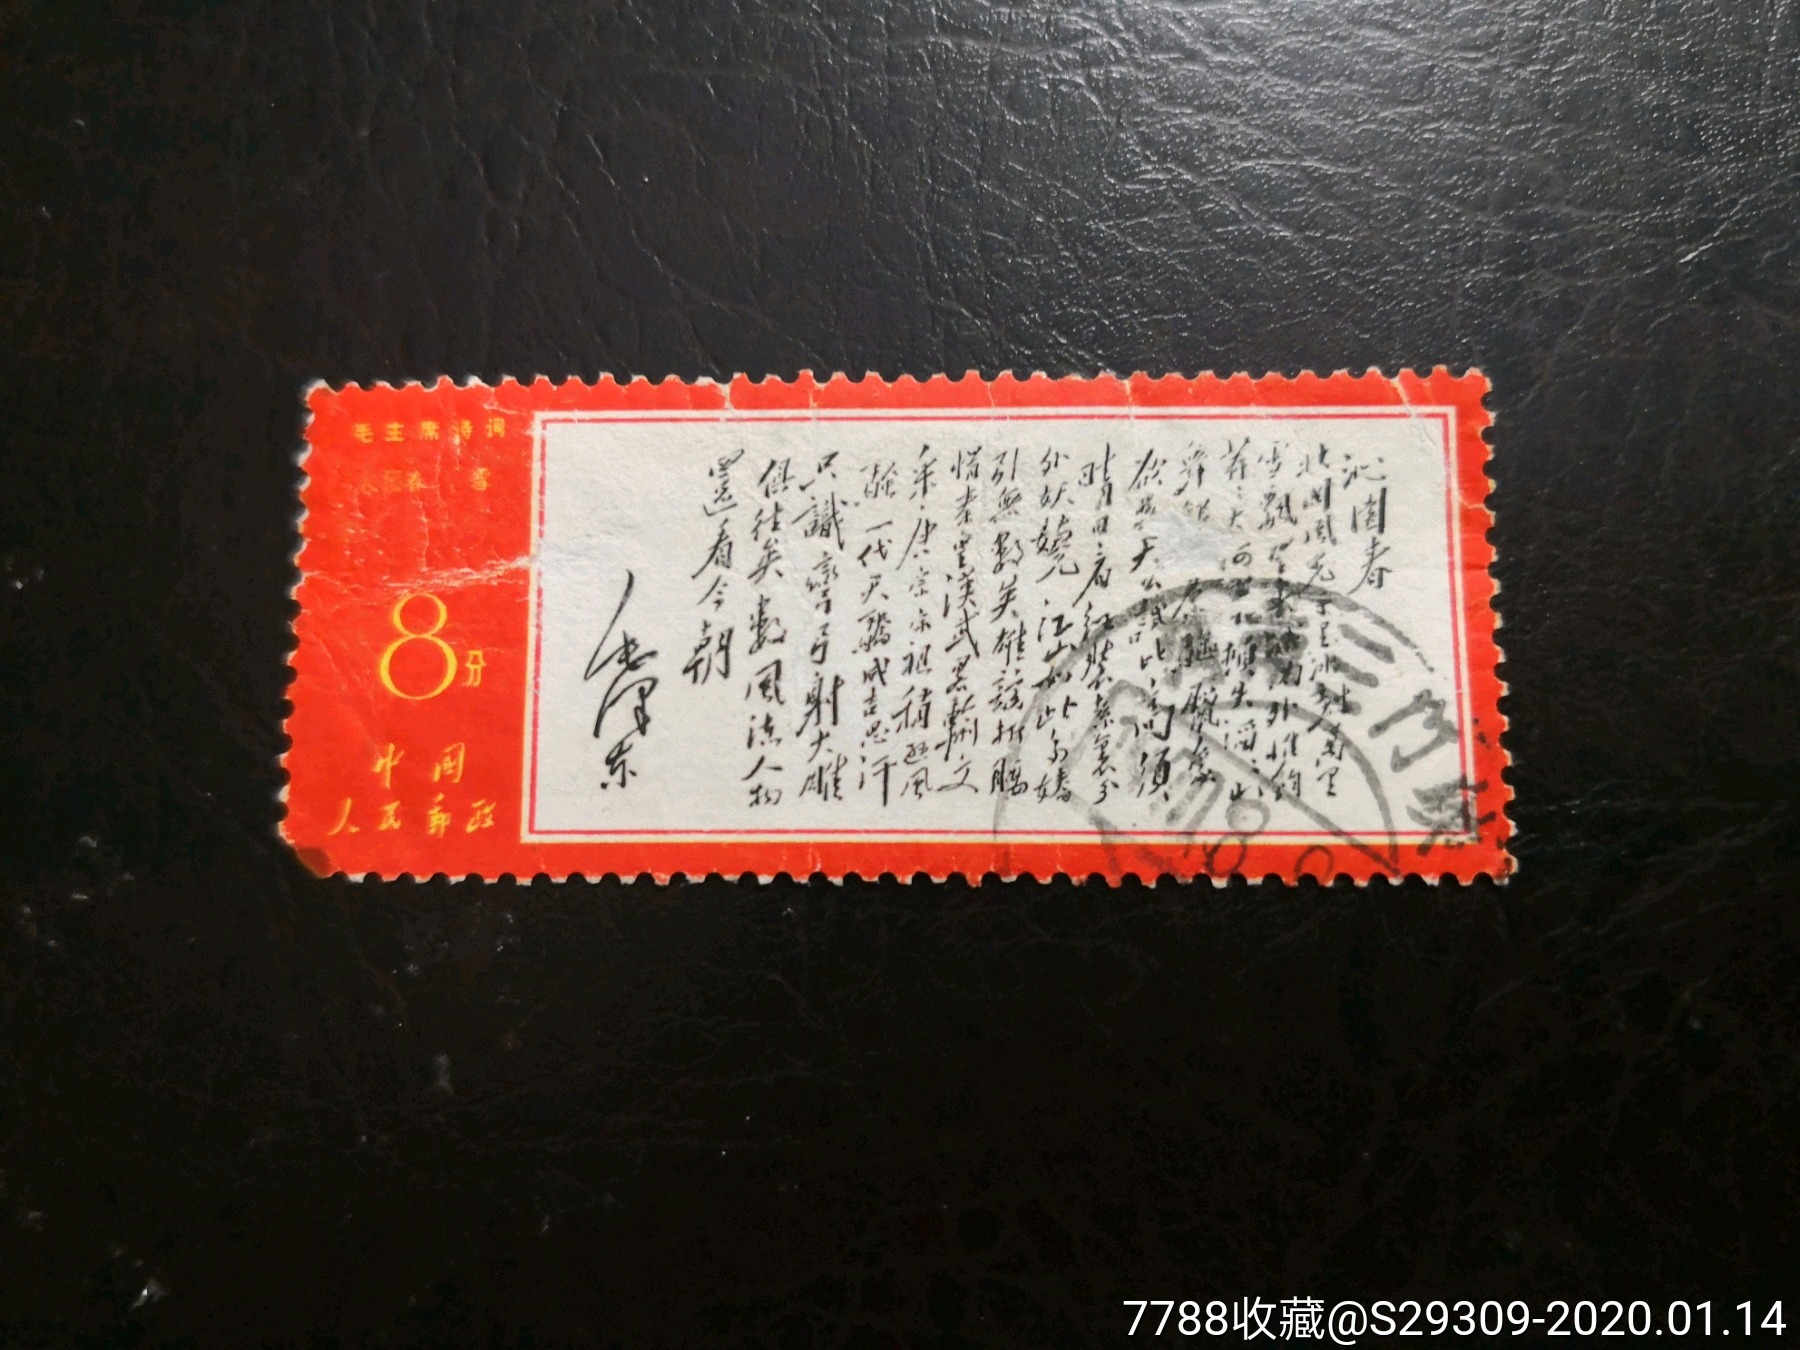 毛主席诗词
沁园春 雪
8分
中国
人民邮政
沁园春
北国风光千里冰封万里
雪飘望长城内外惟馀
莽莽大河上下顿失滔滔山
舞银蛇原驱腊象
欲与天公试比高须
晴日看红装素裹分
外妖娆 江山如此多娇
引無数英雄竞折腰
惜秦皇漢武略输文
采唐宗宋祖稍逊风
骚一代天骄成吉思汗
只識弯弓射大雕
俱往矣数风流人物
還看今朝
毛泽东
7788收藏@S29309-2020.01.14